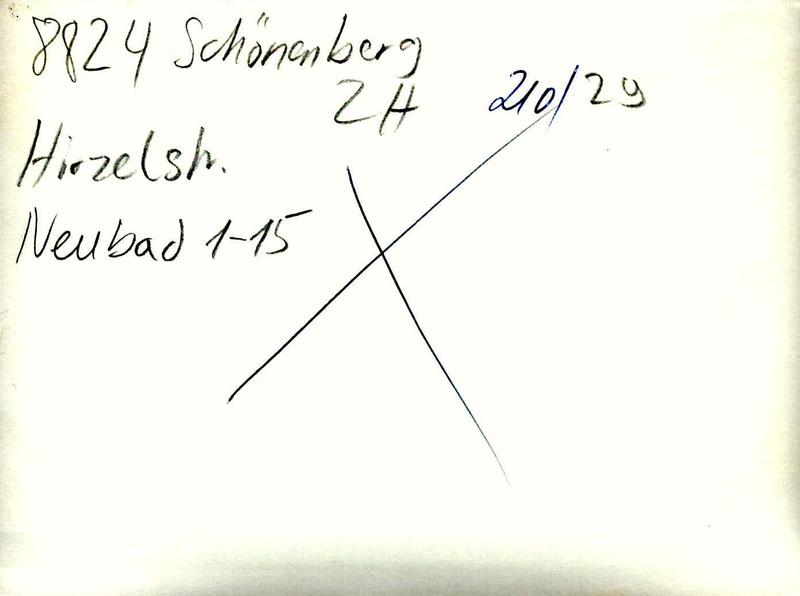 8824 Schönenberg
ZH 210/29
Hirzelstr.
Neubad 1-15